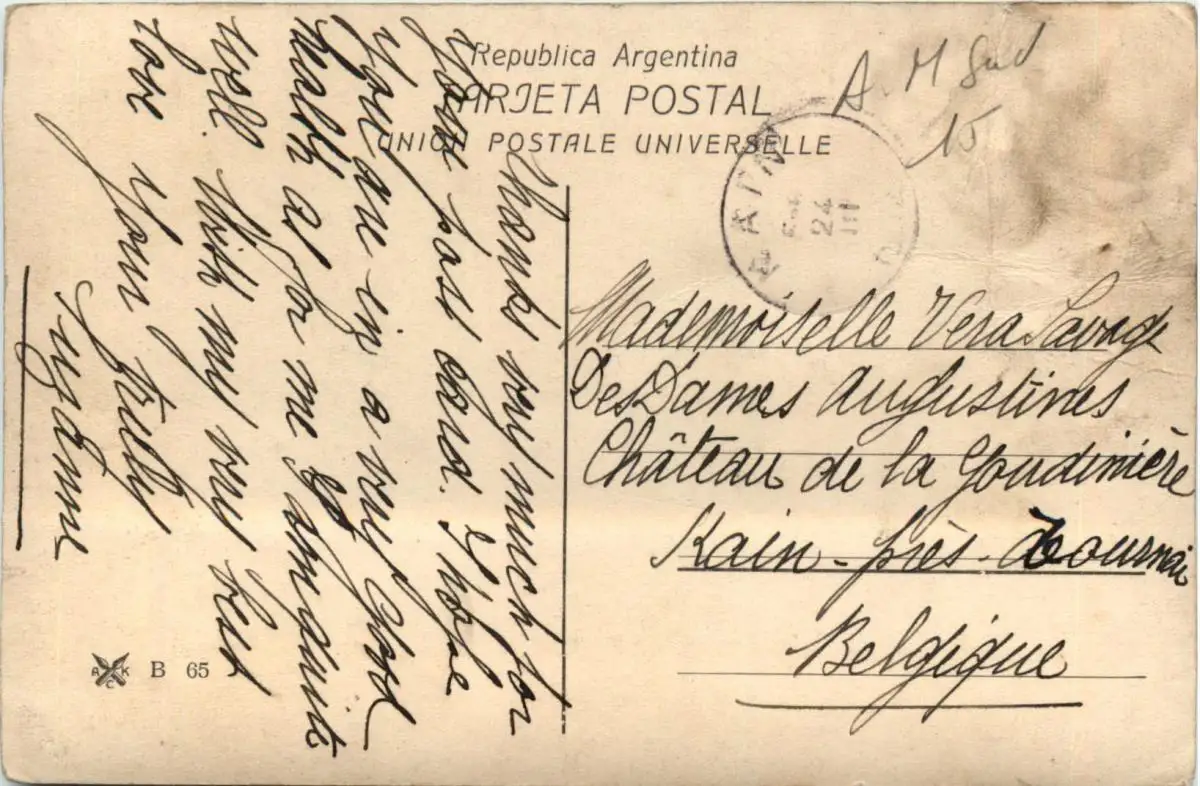 Republica Argentina
TARJETA POSTAL
UNION POSTALE UNIVERSELLE
A. M Sud
15
KAIN
24
III
Thanks very much for
your post card. I hope
you are in a very good
health as for me I am quite
well. With my very best
love Yours truly
Suzanne
Mademoiselle Vera Savage
Des Dames Augustines
Château de la Goudinière
Kain - près - Tournai
Belgique
A C K B 65